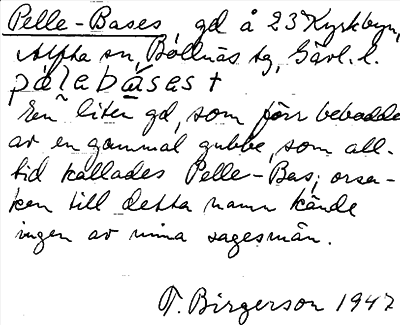 Pelle-Bases, gd å 23 Kyrkbyn,
Alfta sn, Bollnäs tg, Gävl. l.
pälebásest
En liten gd, som förr beboddes
av en gammal gubbe, som all-
tid kallades Pelle-Bas; orsa-
ken till detta namn kände
ingen av mina sagesmän.
T. Birgerson 1947